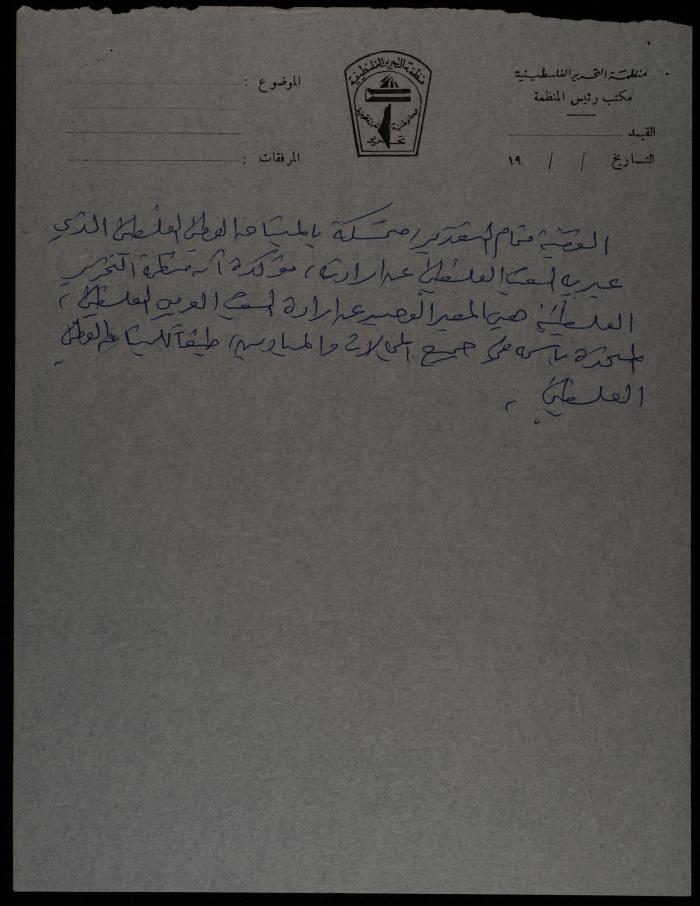 منظمة التحرير الفلسطينية
مكتب رئيس المنظمة
القيد
التاريخ / / ١٩
منظمة التحرير الفلسطينية
وحدة وطنية
تعبئة قومية
تحرير
الموضوع :
المرفقات :
القضية متمام التقدير، متمسكة بالميثاق الوطني الفلسطيني الذي
عبر به الشعب الفلسطيني عن ارادته، مؤكدة أن منظمة التحرير
الفلسطينية هي المعبر الوحيد عن ارادة الشعب العربي الفلسطيني،
المتحدثة باسمه في جميع المجالات والميادين، طبقاً للميثاق الوطني
الفلسطيني.